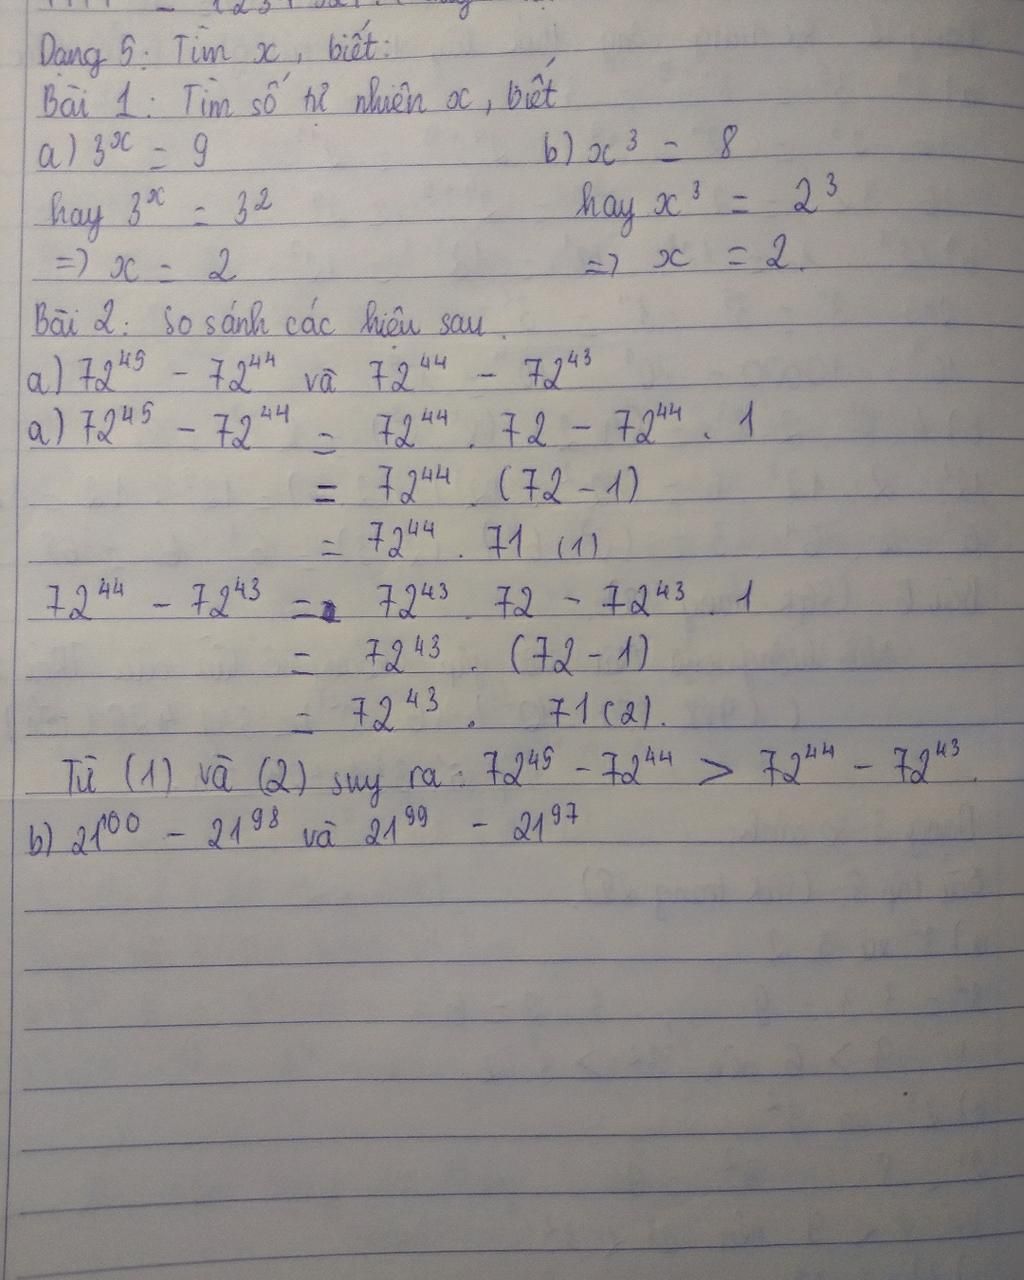 Dạng 5: Tìm x, biết:
Bài 1: Tìm số tự nhiên x, biết
a) 3^x = 9 b) x^3 = 8
hay 3^x = 3^2 hay x^3 = 2^3
=> x = 2 => x = 2.
Bài 2: So sánh các hiệu sau.
a) 72^45 - 72^44 và 72^44 - 72^43
a) 72^45 - 72^44 = 72^44 . 72 - 72^44 . 1
= 72^44 . (72 - 1)
= 72^44 . 71 (1)
72^44 - 72^43 = 72^43 . 72 - 72^43 . 1
= 72^43 . (72 - 1)
= 72^43 . 71 (2).
Từ (1) và (2) suy ra: 72^45 - 72^44 > 72^44 - 72^43.
b) 21^100 - 21^98 và 21^99 - 21^97